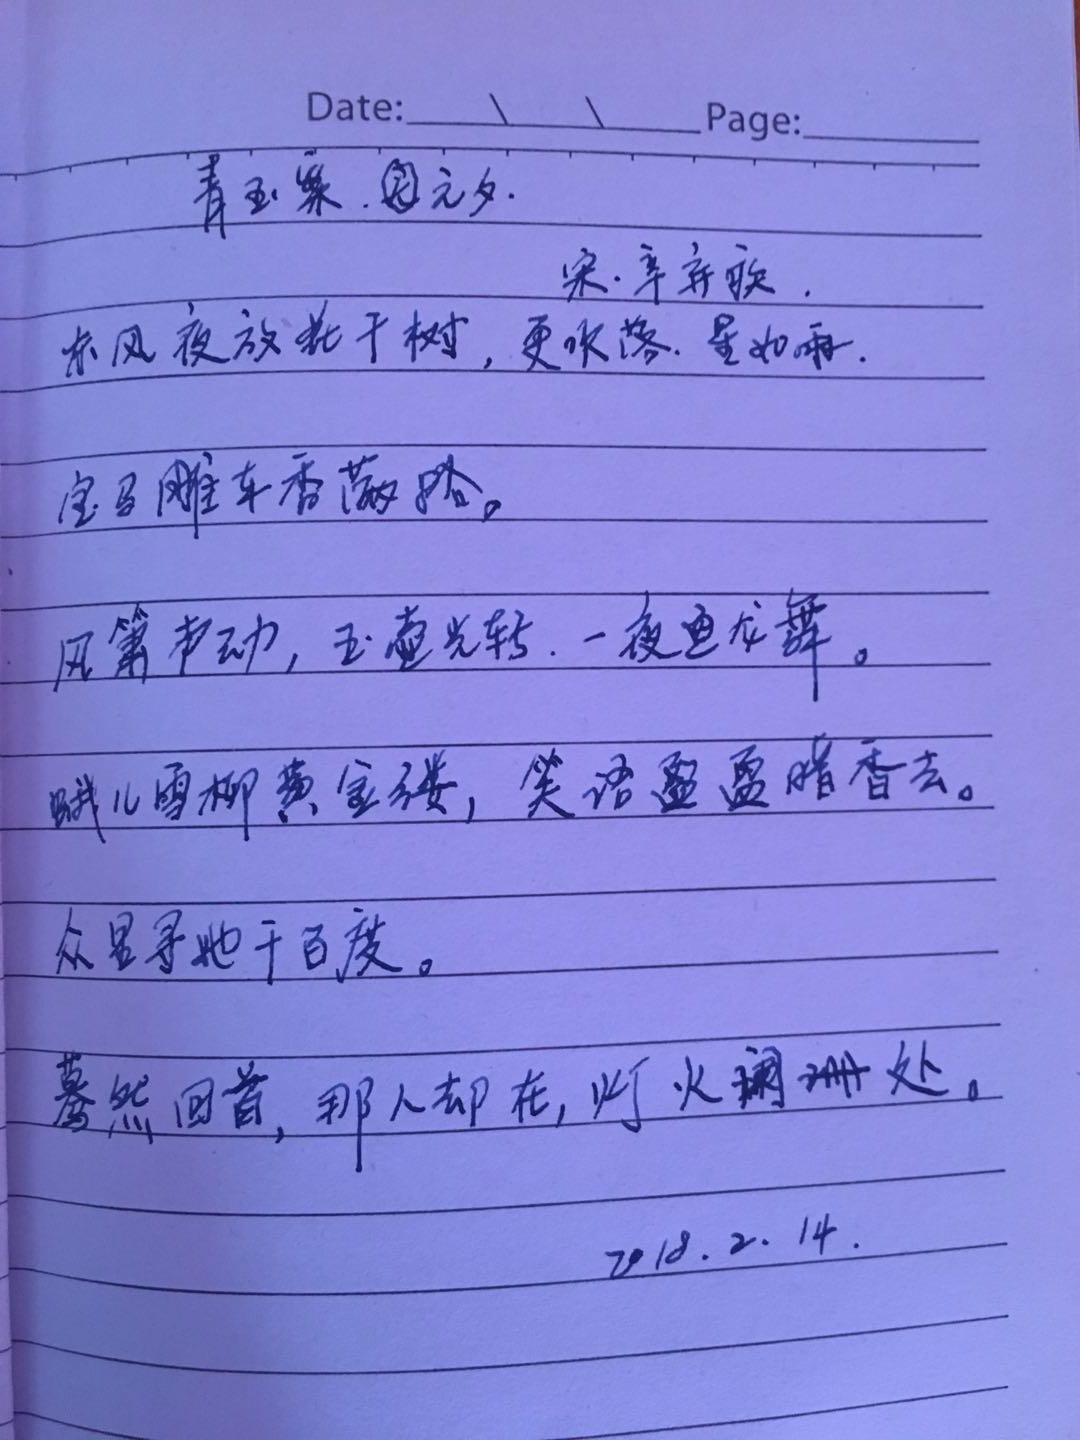 Date:____\____\____Page:________
青玉案.元夕.
宋.辛弃疾.
东风夜放花千树,更吹落.星如雨.
宝马雕车香满路。
凤箫声动,玉壶光转.一夜鱼龙舞。
蛾儿雪柳黄金缕,笑语盈盈暗香去。
众里寻她千百度。
蓦然回首,那人却在,灯火阑珊处。
2018.2.14.